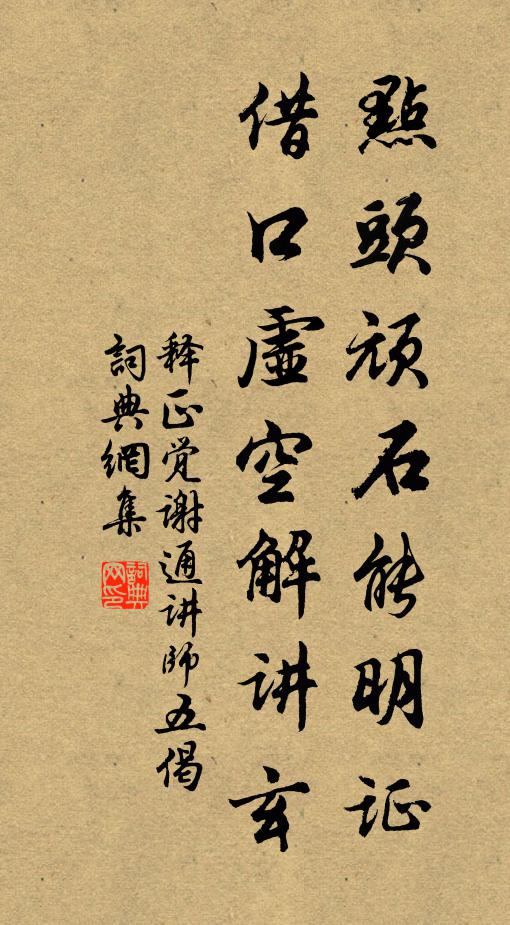 點頭頑石能明证
借口虛空解讲玄
释正觉谢通讲師五偈
詞典網集
詞典網印